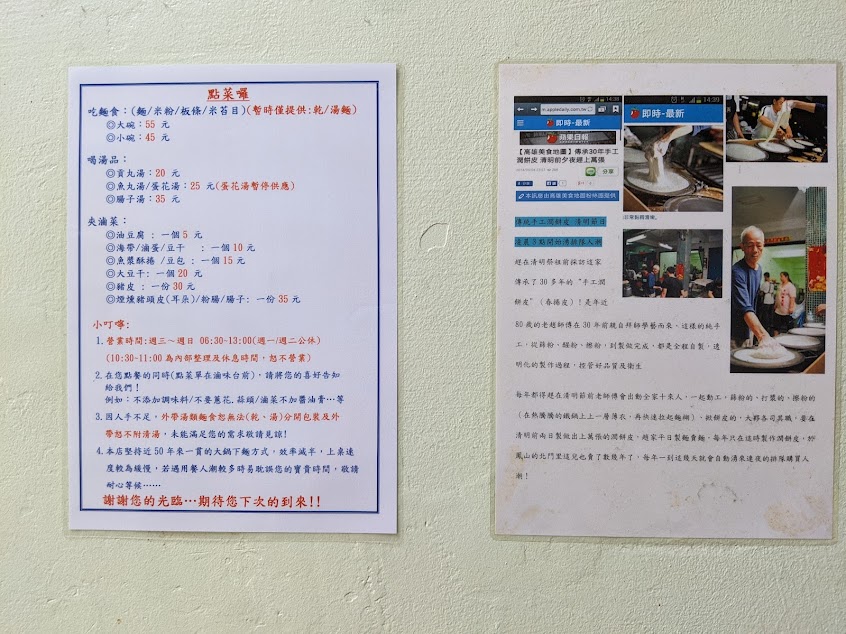 點菜囉
吃麵食：(麵/米粉/板條/米苔目)(暫時僅提供:乾/湯麵)
◎大碗：55 元
◎小碗：45 元
喝湯品：
◎貢丸湯：20 元
◎魚丸湯/蛋花湯：25 元(蛋花湯暫停供應)
◎腸子湯：35 元
夾滷菜：
◎油豆腐 : 一個 5 元
◎海帶/滷蛋/豆干 : 一個 10 元
◎魚漿酥捲 /豆包 : 一個 15 元
◎大豆干: 一個 20 元
◎豬皮 : 一份 30 元
◎煙燻豬頭皮(耳朵)/粉腸/腸子: 一份 35 元
小叮嚀:
1.營業時間:週三～週日 06:30-13:00(週一/週二公休)
(10:30-11:00 為內部整理及休息時間，恕不營業)
2.在您點餐的同時(點菜單在滷味台前)，請將您的喜好告知
給我們！
例如：不添加調味料/不要蔥花.蒜頭/滷菜不加醬油膏…等
3.因人手不足，外帶湯類麵食恕無法(乾、湯)分開包裝及外
帶恕不附清湯，未能滿足您的需求敬請見諒!
4.本店堅持近 50 年來一貫的大鍋下麵方式，效率減半，上桌速
度較為緩慢，若遇用餐人潮較多時易耽誤您的寶貴時間，敬請
耐心等候……
謝謝您的光臨…期待您下次的到來!!
14:39
appledaily.com.tw
即時-最新
蘋果日報
【高雄美食地圖】傳承30年手工
潤餅皮 清明前夕夜趕上萬張
分享
本訊息由高雄美食地圖粉絲團提供
14:39
即時-最新
傳統手工潤餅皮 清明節日
凌晨3點開始傳排隊人潮
趕在清明祭祖前採訪這家
傳承了 30 多年的"手工潤
餅皮"（春捲皮）！是年近
80 歲的老趙師傅在 30 年前親自拜師學藝而來、這樣的純手
工，從篩粉、醒粉、擦粉，到製做完成，都是全程自製，透
明化的製作過程，控管好品質及衛生
每年都得趕在清明節前老師傅會出動全家十來人，一起動工，篩粉的、打漿的、擦粉的
（在熱騰騰的鐵鍋上上一層薄衣，再快速拉起麵糊）、掀餅皮的，大夥各司其職，要在
清明前兩日製做出上萬張的潤餅皮，趙家平日製麵賣麵，每年只在這時製作潤餅皮，於
鳳山的北門里這兒也賣了數幾年了，每年一到這幾天就會自動湧來連夜的排隊購買人
潮！